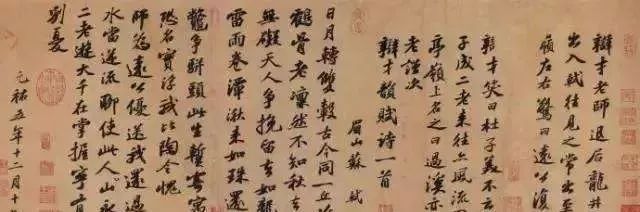 辯才老師退居龍井
出入軾往見之常出至
嶺左右驚曰遠公復
辯才笑曰杜子美不云
子成二老來往亦風流
亭嶺上名之曰過溪亦
老謹次
辯才韻賦詩一首
眉山蘇軾
日月轉雙轂古今同一丘
鶴骨老凜然不知秋去
無礙天人爭挽留去如龍
雷雨卷潭湫來如珠還
鼈爭駢頭此生暫寄寓
恐名實浮我比陶令愧
師為遠公優送我還過
水當逆流聊使此人山永
二老遊大千在掌握寧有
別憂
元祐五年十二月十